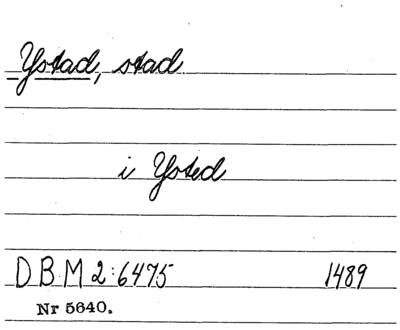 Ystad, stad
i Ysted
DBM 2:6475 1489
Nr 5640.